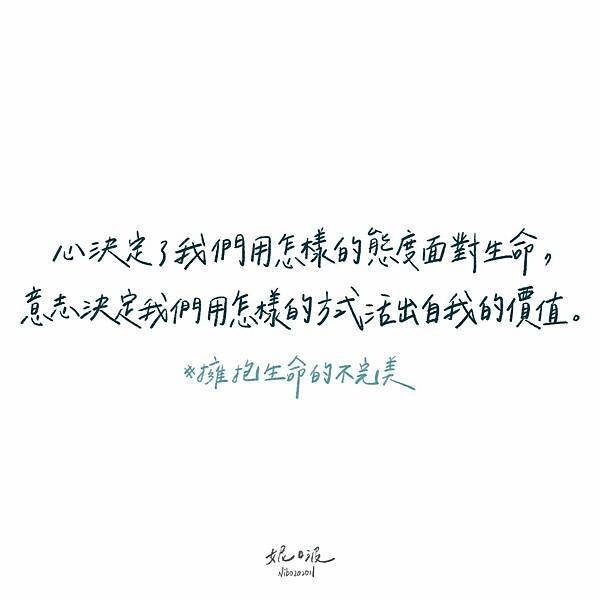 心決定了我們用怎樣的態度面對生命，
意志決定我們用怎樣的方式活出自我的價值。
※擁抱生命的不完美
妮啵